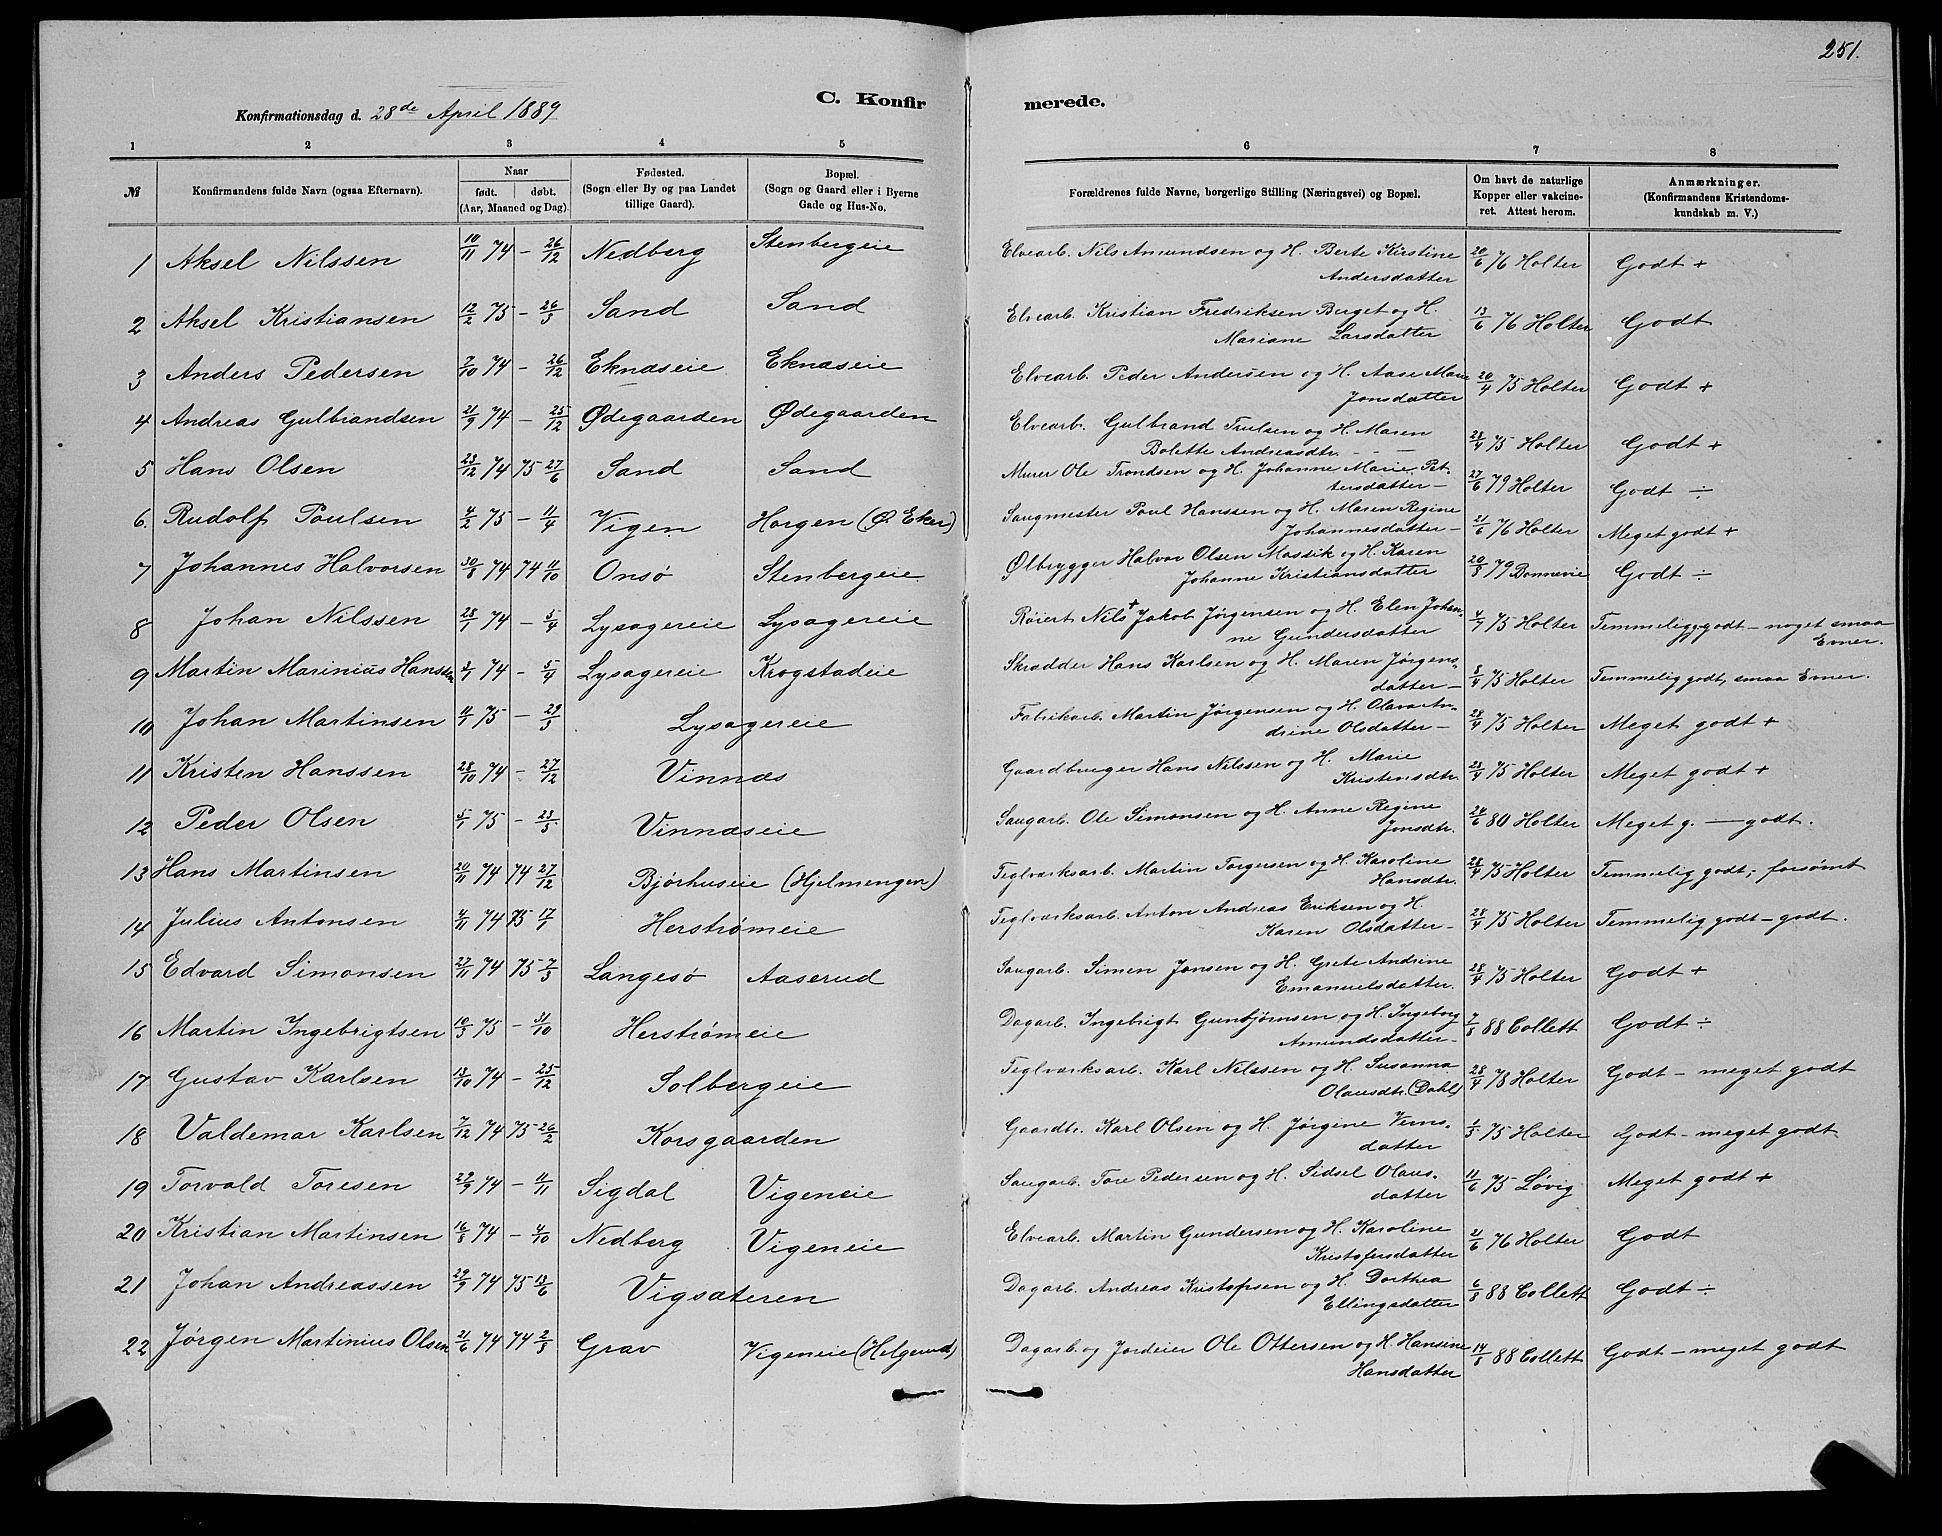 251.
C. Konfirmerede.
Konfirmationsdag d. 28de April 1889
1 2 3 4 5 6 7 8
№ Konfirmandens fulde Navn (ogsaa Efternavn). Naar født. døbt. (Aar, Maaned og Dag). Fødested. (Sogn eller By og paa Landet tillige Gaard). Bopæl. (Sogn og Gaard eller i Byerne Gade og Hus-No. Forældrenes fulde Navne, borgerlige Stilling (Næringsvei) og Bopæl. Om havt de naturlige Kopper eller vakcineret. Attest herom. Anmærkninger. (Konfirmandens Kristendomskundskab m. V.)
1 Aksel Nilssen 10/11 74 – 26/12 Nedberg Stenbergeie Elvearb. Nils Amundsen og H. Berte Kirstine Andersdatter 20/6 76 Holter Godt +
2 Aksel Kristiansen 12/2 75 – 26/3 Sand Sand Elvearb. Kristian Fredriksen Berget og H. Mariane Larsdatter 13/6 76 Holter Godt
3 Anders Pedersen 7/10 74 – 26/12 Eknæseie Eknæseie Elvearb. Peder Andersen og H. Aase Marie Jonsdatter 20/4 75 Holter Godt +
4 Andreas Gulbrandsen 21/9 74 – 25/12 Ødegaarden Ødegaarden Elvearb. Gulbrand Trulsen og H. Maren Bolette Andreasdtr. 28/4 75 Holter Godt +
5 Hans Olsen 23/12 74 75 27/6 Sand Sand Murer Ole Trondsen og H. Johanne Marie Pettersdatter – 27/6 79 Holter Godt ÷
6. Rudolf Poulsen 4/2 75 – 11/4 Vigen Horgen (Ø. Eker) Saugmester Poul Hanssen og H. Maren Regine Johannesdatter – 21/6 76 Holter Meget godt +
7 Johannes Halvorsen 30/8 74 74 11/10 Onsø Stenbergeie Ølbrygger Halvor Olsen Mossik og H. Karen Johanne Kristiansdatter 20/8 79 Bonnevie Godt ÷
8 Johan Nilssen 28/1 74 – 5/4 Lysagereie Lysagereie Røiert Nils + Jakob Jørgensen og H. Elen Johanne Gundersdatter 4/7 75 Holter Temmelig godt – noget smaa Evner.
9 Martin Marinius Hanssen 3/1 74 – 5/4 Lysagereie Krogstadeie Skrædder Hans Karlsen og H. Maren Jørgensdatter – 8/4 75 Holter Temmelig godt, smaa Evner.
10 Johan Martinsen 11/1 75 – 29/3 Lysagereie Fabrikarb. Martin Jørgensen og H. Olava Andrine Olsdatter – 28/4 75 Holter Meget godt +
11 Kristen Hanssen 28/10 74 – 27/12 Vinnæs Gaardbruger Hans Nilssen og H. Marie Kristensdtr. 28/4 75 Holter Meget godt +
12 Peder Olsen 5/1 75 – 23/5 Vinnæseie Saugarb. Ole Simonsen og H. Anne Regine Jonsdtr. 24/6 80 Holter Meget g. — godt.
13 Hans Martinsen 20/11 74 74 27/12 Bjørhuseie (Hjelmengen) Teglværksarb. Martin Torgersen og H. Karoline Hansdtr. 28/4 75 Holter Temmelig godt; forsømt
14 Julius Antonsen 4/11 74 75 17/1 Herstrømeie Teglværksarb. Anton Andreas Eriksen og H. Karen Olsdatter – 28/4 75 Holter Temmelig godt – godt.
15 Edvard Simonsen 27/11 74 75 7/3 Langesø Aaserud Saugarb. Simen Jonsen og H. Grete Andrine Emanuelsdatter. 28/4 75 Holter Godt +
16 Martin Ingebrigtsen 10/3 75 – 31/10 Herstrømeie Dagarb. Ingebrigt Gunbjørnsen og H. Ingeborg Amundsdatter – 7/8 88 Collett Godt ÷
17 Gustav Karlsen 13/10 74 – 25/12 Solbergeie Teglværksarb. Karl Nilssen og H. Susanna Olausdtr. (Dahl) 28/4 78 Holter Godt – meget godt
18 Valdemar Karlsen 7/12 74 75 26/2 Korsgaarden Gaardbr. Karl Olsen og H. Jørgine datter 1/5 75 Holter Godt – meget godt
19 Torvald Toresen 29/9 74 – 11/11 Sigdal Vigeneie Saugarb. Tore Pedersen og H. Sidsel Olausdatter 11/6 75 Løvig Meget godt +
20 Kristian Martinsen 16/8 74 – 4/10 Nedberg Vigeneie Elvearb. Martin Gundersen og H. Karoline Kristofersdatter 21/6 76 Holter Godt
21 Johan Andreassen 29/9 74 75 13/6 Vigsæteren Dagarb. Andreas Kristofsen og H. Dorthea Ellingsdatter 6/8 88 Collett Godt ÷
22 Jørgen Martinius Olsen 21/6 74 74 2/8 Grav Vigeneie (Helgerud) Dagarb. og Jordeier Ole Ottersen og H. Hansine Hansdatter 14/8 88 Collett Godt – meget godt